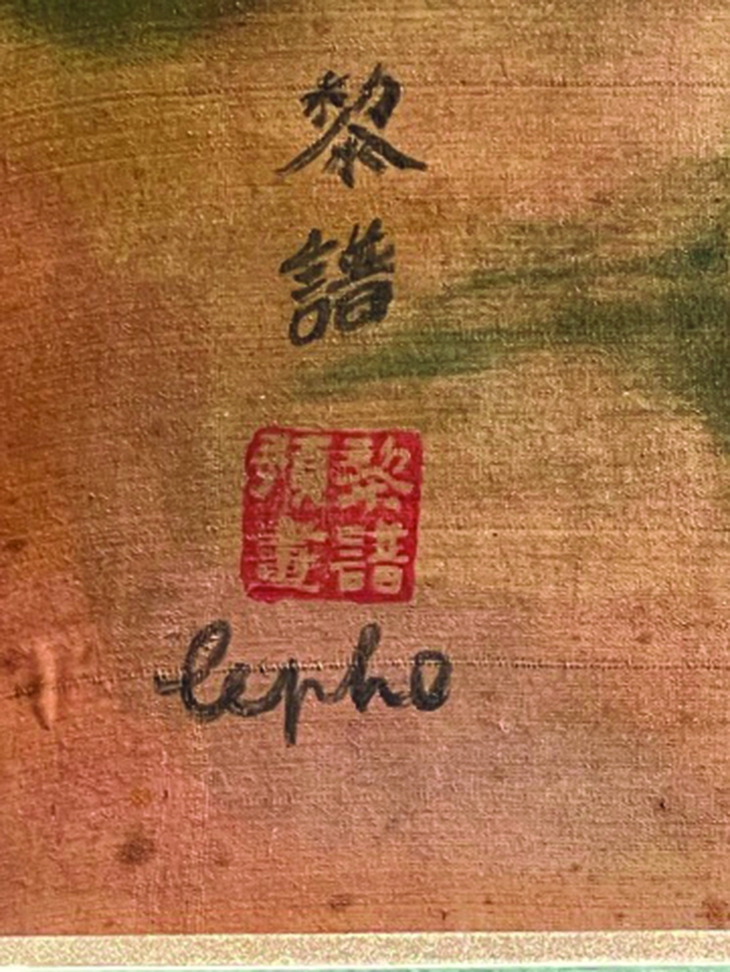 黎
譜
黎譜
畫
lepho